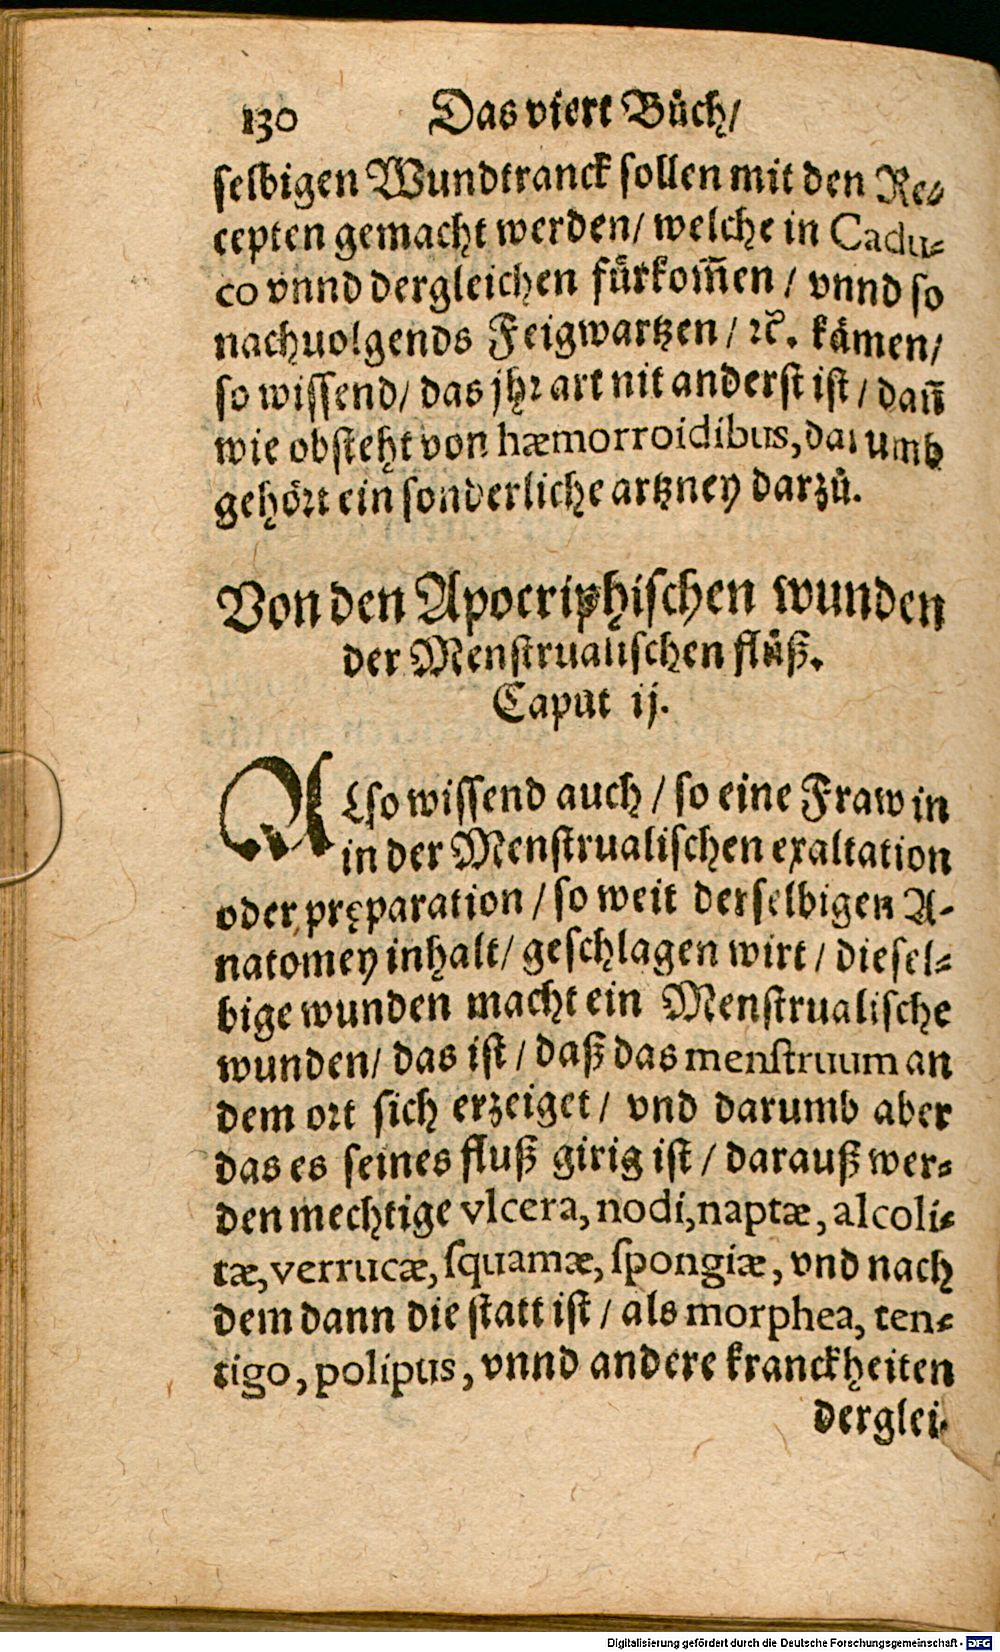 130 Das viert Bůch/
selbigen Wundtranck sollen mit den Re-
cepten gemacht werden/ welche in Cadu-
co vnnd dergleichen fürkom̃en / vnnd so
nachuolgends Feigwartzen / ꝛc. kämen/
so wissend/ das jhr art nit anderst ist / dañ
wie obsteht von hæmorroidibus, darumb
gehört ein sonderliche artzney darzů.
Von den Apocriphischen wunden
der Menstrualischen flüß.
Caput ij.
ALso wissend auch / so eine Fraw in
in der Menstrualischen exaltation
oder pręparation / so weit derselbigen A-
natomey inhalt/ geschlagen wirt / diesel-
bige wunden macht ein Menstrualische
wunden/ das ist / daß das menstruum an
dem ort sich erzeiget / vnd darumb aber
das es seines fluß girig ist / darauß wer-
den mechtige vlcera, nodi, naptæ, alcoli-
tæ, verrucæ, squamæ, spongiæ, vnd nach
dem dann die statt ist / als morphea, ten-
tigo, polipus, vnnd andere kranckheiten
derglei-
Digitalisierung gefördert durch die Deutsche Forschungsgemeinschaft - DFG